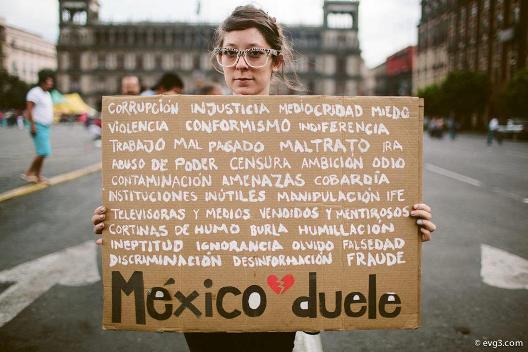 CORRUPCIÓN INJUSTICIA MEDIOCRIDAD MIEDO
VIOLENCIA CONFORMISMO INDIFERENCIA
TRABAJO MAL PAGADO MALTRATO IRA
ABUSO DE PODER CENSURA AMBICIÓN ODIO
CONTAMINACIÓN AMENAZAS COBARDÍA
INSTITUCIONES INÚTILES MANIPULACIÓN IFE
TELEVISORAS Y MEDIOS VENDIDOS Y MENTIROSOS
CORTINAS DE HUMO BURLA HUMILLACIÓN
INEPTITUD IGNORANCIA OLVIDO FALSEDAD
DISCRIMINACIÓN DESINFORMACIÓN FRAUDE
México duele
© evg3.com